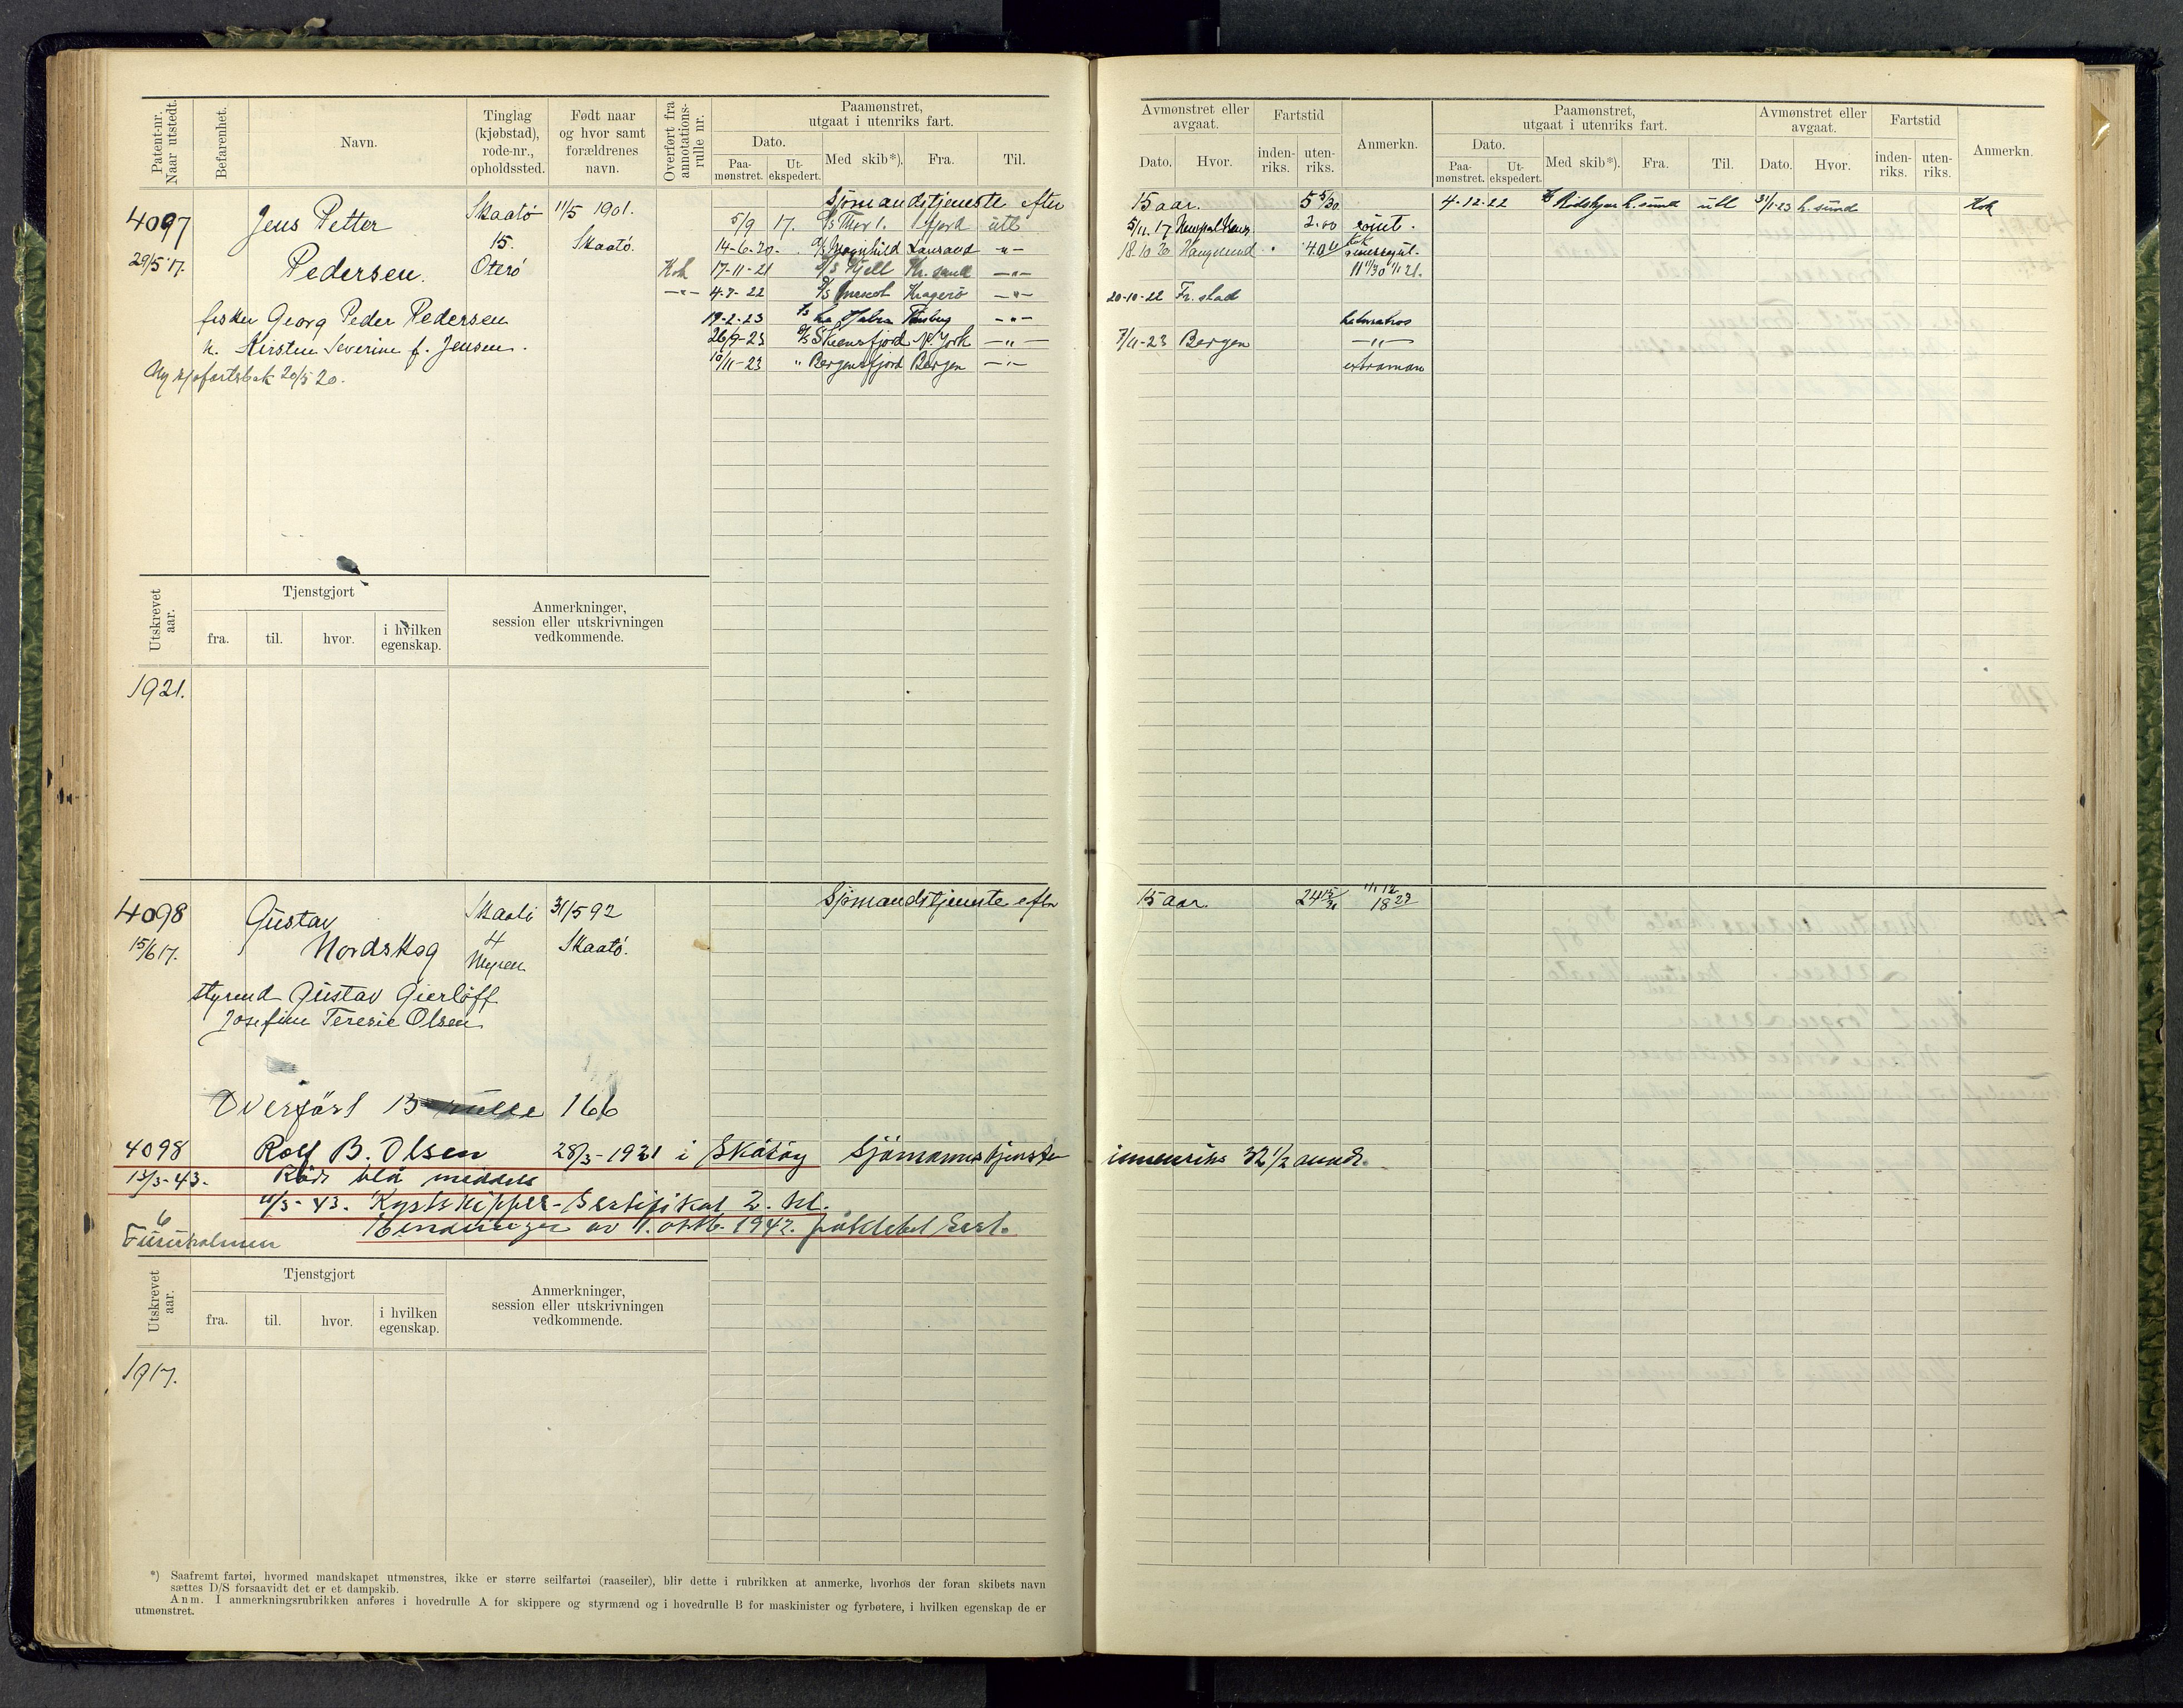 Patent-nr. Naar utstedt.
Befarenhet.
Navn.
Tinglag (kjøbstad), rode-nr., opholdssted.
Født naar og hvor samt forældrenes navn.
Overført fra annotations-rulle nr.
Paamønstret, utgaat i utenriks fart.
Dato.
Paa-mønstret.
Ut-ekspedert.
Med skib*).
Fra.
Til.
Avmønstret eller avgaat.
Dato.
Hvor.
Fartstid
inden-riks.
uten-riks.
Anmerkn.
Paamønstret, utgaat i utenriks fart.
Dato.
Paa-mønstret.
Ut-ekspedert.
Med skib*).
Fra.
Til.
Avmønstret eller avgaat.
Dato.
Hvor.
Fartstid
inden-riks.
uten-riks.
Anmerkn.
4097
29/5 17.
Jens Petter
Pedersen.
Skaatö
15.
Oterö
11/5 1901.
Skaatö.
fisker Georg Peder Pedersen
h. Kirsten Severine f. Jensen.
Ny sjøfartsbok 20/5 20.
Sjömandstjeneste efter 15 aar. 5 5/30
5/9 17. Thor 1. utl 5/11. 17 2.00
14-6-20. Ragnhild -"- 18.10 20 Haugesund
Kok 17-11-21 D/S Kjell Kr. sand -"-
-"- 4-7-22 Kragerö -"- 20-10-22 Fr. stad
19-2-23 -"-
26/9-23 Skiensfjord N. York -"- 7/11-23 Bergen -"-
10/11-23 " Bergensfjord Bergen -"-
4-12-22 h. sund utl 31/1-23 h. sund Kok
Utskrevet aar.
Tjenstgjort
fra.
til.
hvor.
i hvilken egenskap.
Anmerkninger, session eller utskrivningen vedkommende.
1921.
4098
15/6 17.
Gustav
Nordskog
Skaatö
4
Myren
31/5 92
Skaatö.
Sjömandstjeneste efter 15 aar.
styrmd Gustav Gierlöff
Josefine Teresie Olsen
Overfört B rulle 166
4098 Rolf B. Olsen 28/3-1921 i Skåtöy Sjömannstjeneste innenriks 32 1/2 mndr.
13/3-43. Röd blå meddelt
11/3-43. Kystskipper-Sertifikat 2. kl.
Endringer av 1. oktb. 1942. påklebet Sert.
6
Utskrevet aar.
Tjenstgjort
fra.
til.
hvor.
i hvilken egenskap.
Anmerkninger, session eller utskrivningen vedkommende.
1917.
*) Saafremt fartøi, hvormed mandskapet utmønstres, ikke er større seilfartøi (raaseiler), blir dette i rubrikken at anmerke, hvorhos der foran skibets navn
sættes D/S forsaavidt det er et dampskib.
Anm. I anmerkningsrubrikken anføres i hovedrulle A for skippere og styrmænd og i hovedrulle B for maskinister og fyrbøtere, i hvilken egenskap de er
utmønstret.